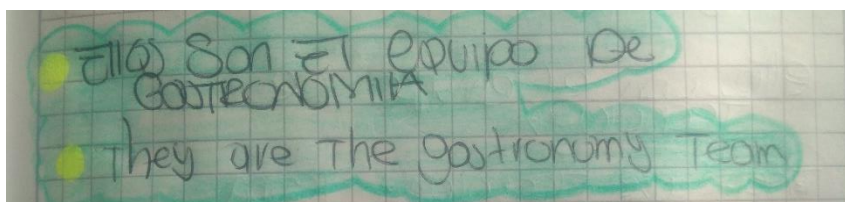 Ellos Son El equipo De
GASTRONOMIA
They are The gastronomy Team